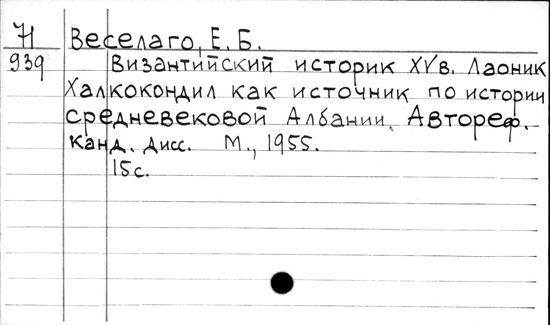 71 Веселаго, Е. Б.
939 Византийский историк XVв. Лаоник
Халкокондил как источник по истории
средневековой Албании. Автореф.
Канд. дисс. М., 1955.
15с.